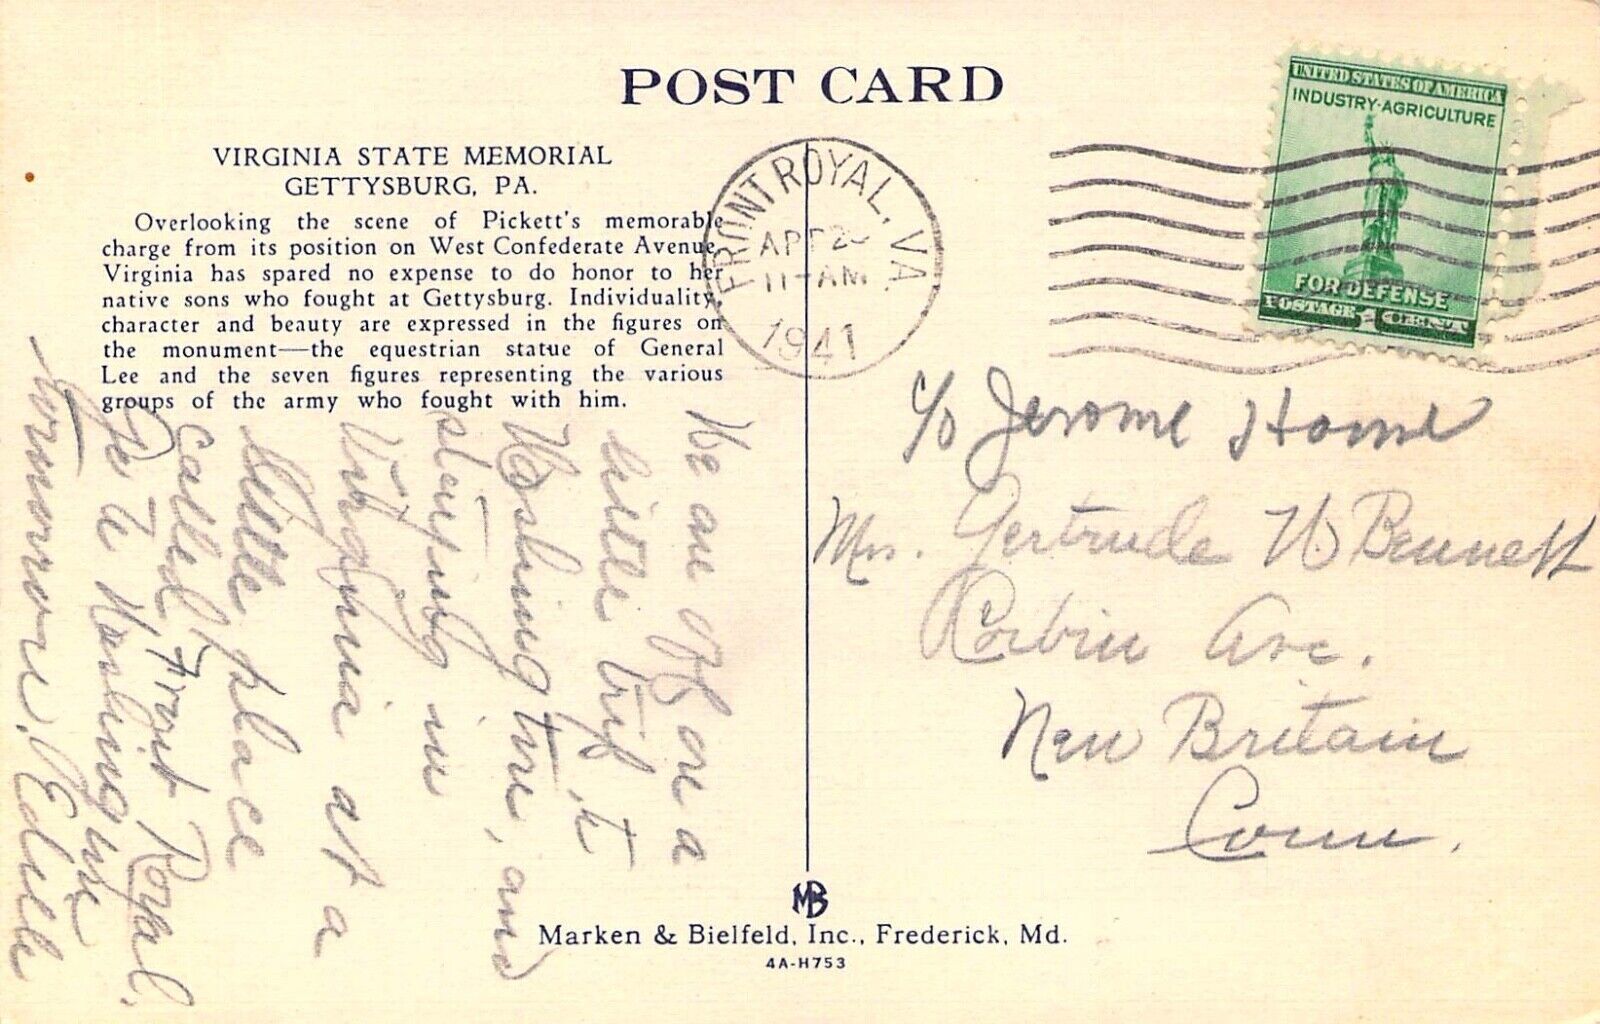 POST CARD
VIRGINIA STATE MEMORIAL
GETTYSBURG, PA.
Overlooking the scene of Pickett's memorable
charge from its position on West Confederate Avenue,
Virginia has spared no expense to do honor to her
native sons who fought at Gettysburg. Individuality,
character and beauty are expressed in the figures on
the monument—the equestrian statue of General
Lee and the seven figures representing the various
groups of the army who fought with him.
We are off on a
little trip to
Washington, and
sleeping in
Virginia at a
little place
called Front Royal.
Go to Washington
tomorrow.
FRONT ROYAL, VA.
APR
11-AM
1941
UNITED STATES OF AMERICA
INDUSTRY·AGRICULTURE
FOR DEFENSE
POSTAGE 1 CENT
c/o Jerome Home
Mrs. Gertrude W Bennett
Corbin Ave.
New Britain
Conn.
MB
Marken & Bielfeld, Inc., Frederick, Md.
4A-H753